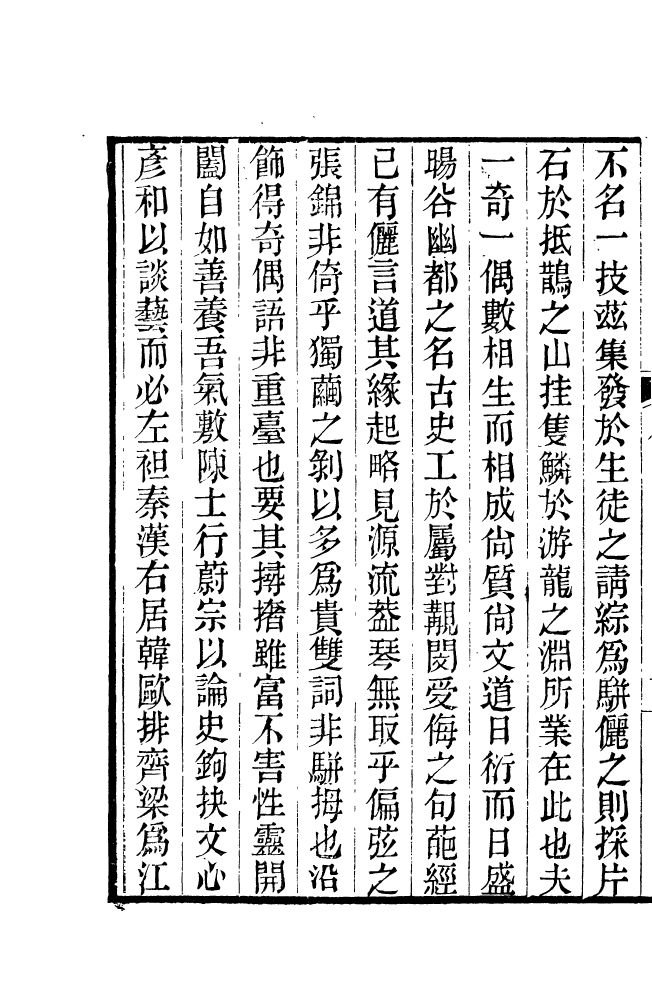 不名一技茲集發於生徒之請綜爲駢儷之則採片
石於抵鵲之山挂隻鱗於游龍之淵所業在此也夫
一奇一偶數相生而相成尙質尙文道日衍而日盛
暘谷幽都之名古史工於屬對覯閔受侮之句葩經
已有儷言道其緣起略見源流葢琴無取乎偏弦之
張錦非倚乎獨繭之剝以多爲貴雙詞非駢拇也沿
飾得奇偶語非重臺也要其撏撦雖富不害性靈開
闔自如善養吾氣敷陳士行蔚宗以論史鉤抉文心
彥和以談藝而必左袒秦漢右居韓歐排齊梁爲江